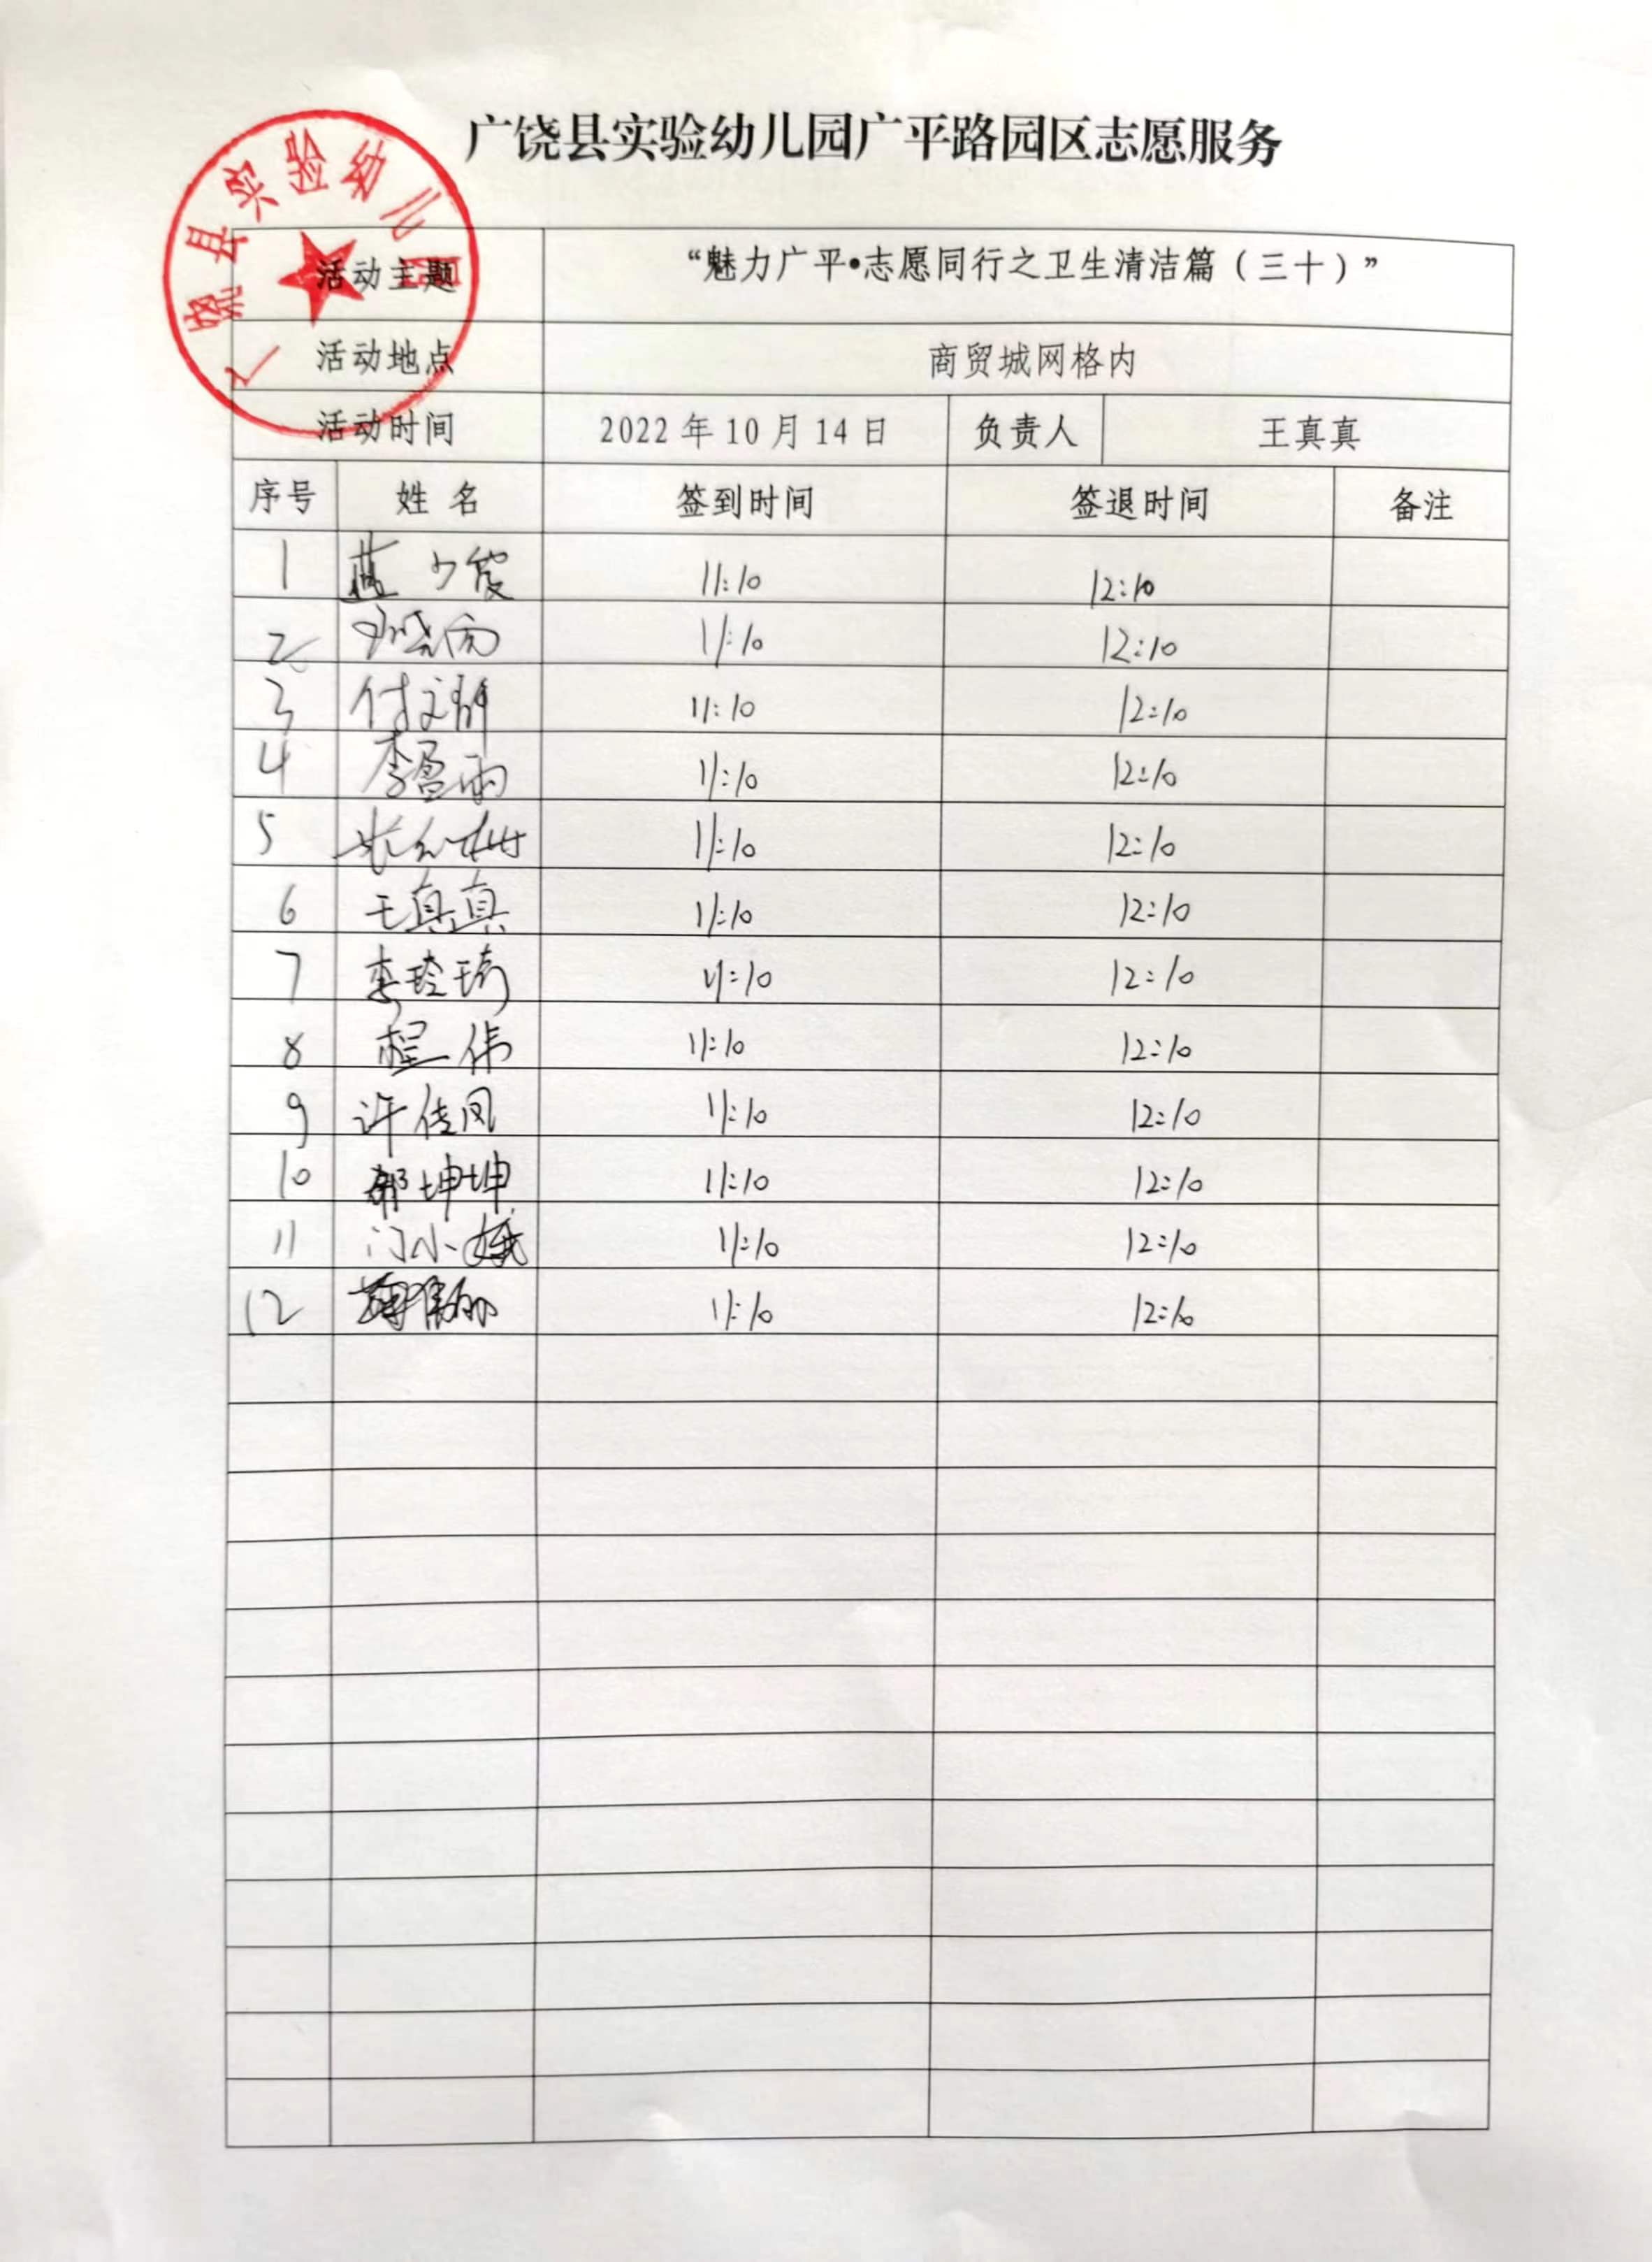 广饶县实验幼儿园广平路园区志愿服务
广饶县实验幼儿园
活动主题 “魅力广平•志愿同行之卫生清洁篇（三十）”
活动地点 商贸城网格内
活动时间 2022年10月14日 负责人 王真真
序号 姓名 签到时间 签退时间 备注
1 11:10 12:10
2 11:10 12:10
3 付文静 11:10 12:10
4 李盈雨 11:10 12:10
5 11:10 12:10
6 王真真 11:10 12:10
7 李玲琦 11:10 12:10
8 程伟 11:10 12:10
9 许佳凤 11:10 12:10
10 坤坤 11:10 12:10
11 门小娥 11:10 12:10
12 11:10 12:10